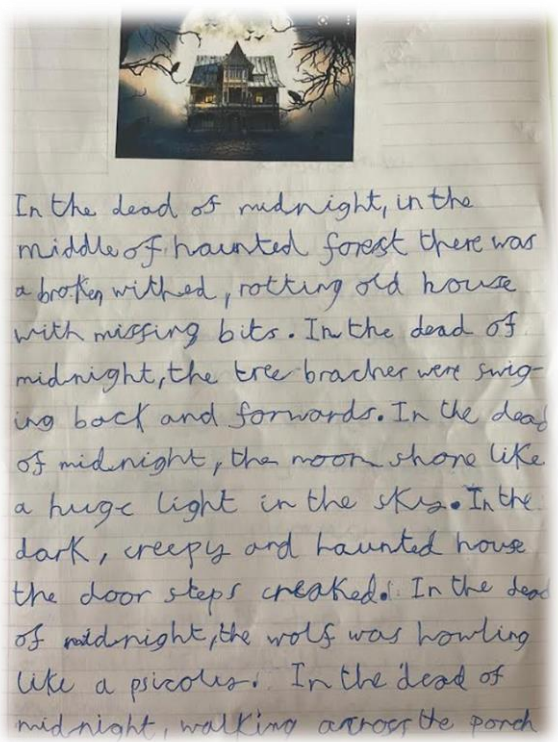 In the dead of midnight, in the
middle of haunted forest there was
a broken withed, rotting old house
with missing bits. In the dead of
midnight, the tree bracher were swig-
ing back and forwards. In the dead
of midnight, the moon shone like
a huge light in the sky. In the
dark, creepy and haunted house
the door steps creaked. In the dead
of midnight, the wolf was howling
like a psicolus. In the dead of
midnight, walking across the porch